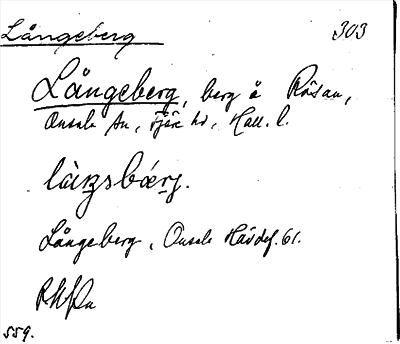 Långeberg 303
Långeberg, berg å Råsan,
Onsala sn, Fjäre hd, Hall. l.
làŋsbǽrj.
Långeberg, Onsala Hävdef. 61.
559.